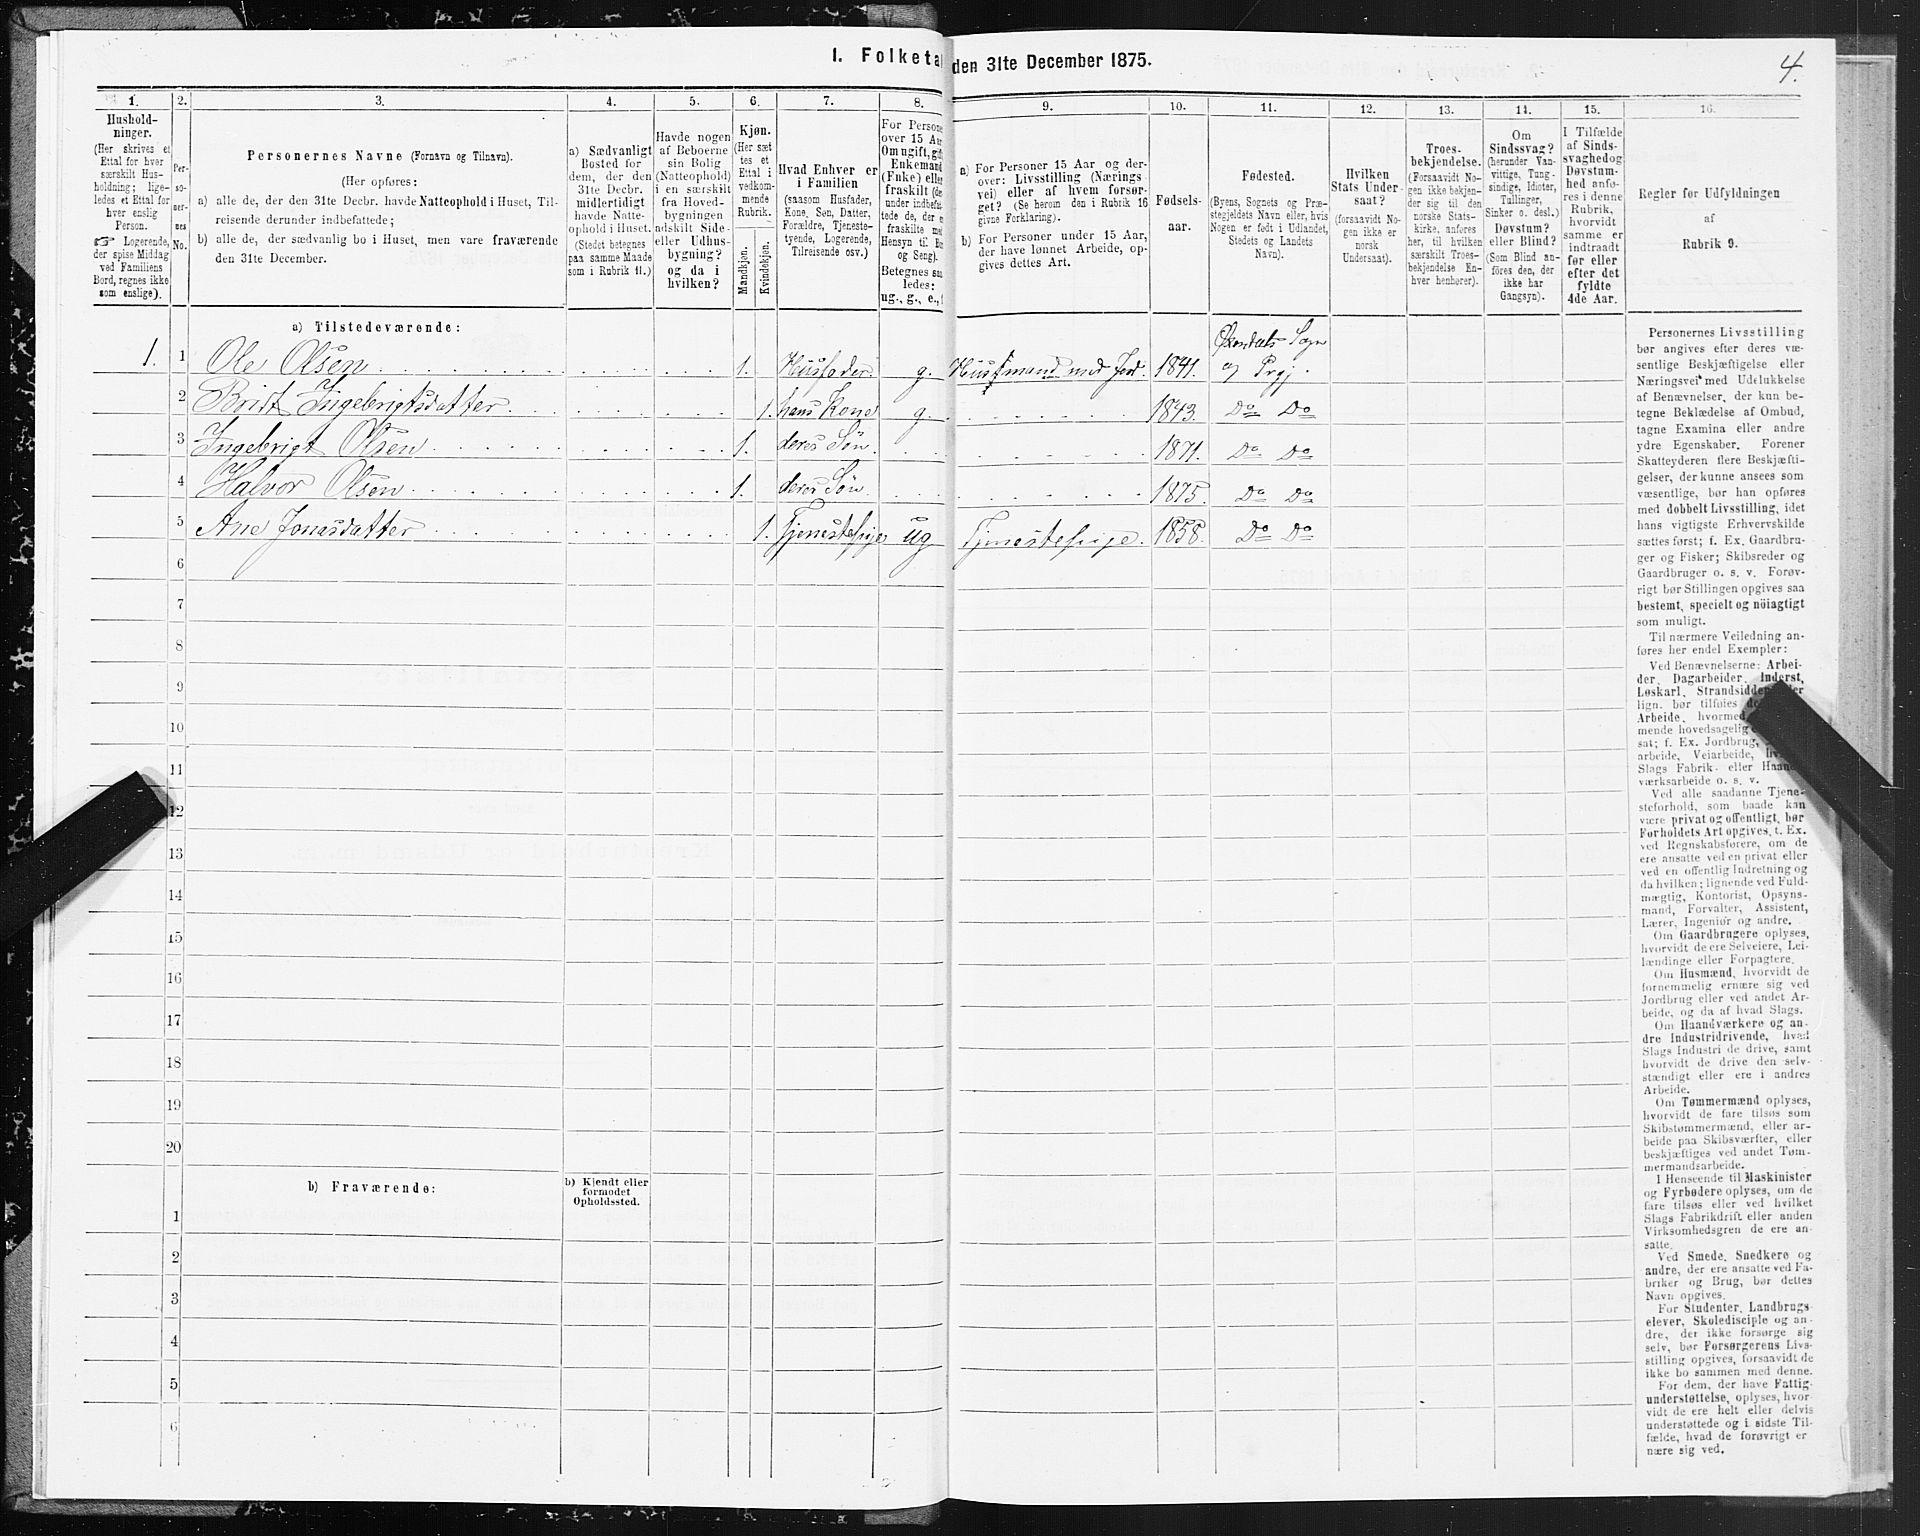 I. Folketal den 31te December 1875.
4.
1.
2.
3.
4.
5.
6.
7.
8.
9.
10.
11.
12.
13.
14.
15.
16.
Hushold-
ninger.
(Her skrives et
Ettal for hver
særskilt Hus-
holdning; lige-
ledes et Ettal for
hver enslig
Person.
☞ Logerende,
der spise Middag
ved Familiens
Bord, regnes ikke
som enslige).
Per-
so-
ner-
nes
No.
Personernes Navne (Fornavn og Tilnavn).
(Her opføres:
a) alle de, der den 31te Decbr. havde Natteophold i Huset, Til-
reisende derunder indbefattede;
b) alle de, der sædvanlig bo i Huset, men vare fraværende
den 31te December.
a) Sædvanligt
Bosted for
dem, der den
31te Decbr.
midlertidigt
havde Natte-
ophold i Huset.
(Stedet betegnes
paa samme Maade
som i Rubrik 11.)
Havde nogen
af Beboerne
sin Bolig
(Natteophold)
i en særskilt
fra Hoved-
bygningen
adskilt Side-
eller Udhus-
bygning?
og da i
hvilken?
Kjøn.
(Her sæt-
tes et
Ettal i
vedkom-
mende
Rubrik.
Mandkjøn.
Kvindekjøn.
Hvad Enhver er
i Familien
(saasom Husfader,
Kone, Søn, Datter,
Forældre, Tjeneste-
tyende, Logerende,
Tilreisende osv.)
For Persone
over 15 Aar
Om ugift, gif
Enkemand
(Enke) elle
fraskilt (de
under indbefat-
tede de, der e
fraskilte me
Hensyn til Bo
og Seng).
Betegnes saa
ledes:
ug., g., e., f
a) For Personer 15 Aar og der-
over: Livsstilling (Nærings-
vei) eller af hvem forsør-
get? (Se herom den i Rubrik 16
givne Forklaring).
b) For Personer under 15 Aar,
der have lønnet Arbeide, op-
gives dettes Art.
Fødsels-
aar.
Fødested.
(Byens, Sognets og Præ-
stegjeldets Navn eller, hvis
Nogen er født i Udlandet,
Stedets og Landets
Navn).
Hvilken
Stats Under-
saat?
(forsaavidt No-
gen ikke er
norsk
Undersaat).
Troes-
bekjendelse.
(Forsaavidt No-
gen ikke bekjen-
der sig til den
norske Stats-
kirke, anføres
her, til hvilken
særskilt Troes-
bekjendelse En-
hver henhører).
Om
Sindssvag?
(herunder Van-
vittige, Tung-
sindige, Idioter,
Tullinger,
Sinker o. desl.)
Døvstum?
eller Blind?
(Som Blind an-
føres den, der
ikke har
Gangsyn).
I Tilfælde
af Sinds-
svaghedog
Døvstum-
hed anfø-
res i denne
Rubrik,
hvorvidt
samme er
indtraadt
før eller
efter det
fyldte
4de Aar.
Regler før Udfyldningen
af
Rubrik 9.
a) Tilstedeværende:
1. 1 Ole Olsen 1. Husfader g. Huusmand med Jord 1841. Øxendals Sogn og Prgj.
2 Brit Ingebrigtsdatter 1. hans Kone g. 1843. Do Do
3 Ingebrigt Olsen 1. deres Søn. 1871. Do Do
4 Halvor Olsen 1. deres Søn 1875. Do Do
5 Ane Jonasdatter 1. Tjenestepige ug Tjenestepige. 1858. Do Do
6
7
8
9
10
11
12
13
14
15
16
17
18
19
20
b) Fraværende:
b) Kjendt eller
formodet
Opholdssted.
1
2
3
4
5
6
Personernes Livsstilling
bør angives efter deres væ-
sentlige Beskjæftigelse eller
Næringsvei med Udelukkelse
af Benævnelser, der kun be-
tegne Beklædelse af Ombud,
tagne Examina eller andre
ydre Egenskaber. Forener
Skatteyderen flere Beskjæfti-
gelser, der kunne ansees som
væsentlige, bør han opføres
med dobbelt Livsstilling, idet
hans vigtigste Erhvervskilde
sættes først; f. Ex. Gaardbru-
ger og Fisker; Skibsreder og
Gaardbruger o. s. v. Forøv-
rigt bør Stillingen opgives saa
bestemt, specielt og nöiagtigt
som muligt.
Til nærmere Veiledning an-
føres her endel Exempler:
Ved Benævnelserne: Arbei-
der, Dagarbeider, Inderst,
Løskarl, Strandsidder
lign. bør tilføies
Arbeide, hvormed
mende hovedsagelig
sat; f. Ex. Jordbrug,
arbeide, Veiarbeide,
Slags Fabrik- eller Haand-
værksarbeide o. s. v.
Ved alle saadanne Tjene-
steforhold, som baade kan
være privat og offentligt, bør
Forholdets Art opgives, t. Ex.
ved Regnskabsførere, om de
ere ansatte ved en privat eller
ved en offentlig Indretning og
da hvilken; lignende ved Fuld-
mægtig, Kontorist, Opsyns-
mand, Forvalter, Assistent,
Lærer, Ingeniør og andre.
Om Gaardbrugere oplyses,
hvorvidt de ere Selveiere, Lei-
lændinge eller Forpagtere.
Om Husmænd, hvorvidt de
fornemmelig ernære sig ved
Jordbrug eller ved andet Ar-
beide, og da af hvad Slags.
Om Haandværkere og an-
dre Industridrivende, hvad
Slags Industri de drive, samt
hvorvidt de drive den selv-
stændigt eller ere i andres
Arbeide.
Om Tømmermænd oplyses,
hvorvidt de fare tilsøs som
Skibstømmermænd, eller ar-
beide paa Skibsværfter, eller
beskjæftiges ved andet Tøm-
mermandsarbeide.
I Henseende til Maskinister
og Fyrbødere oplyses, om de
fare tilsøs eller ved hvilket
Slags Fabrikdrift eller anden
Virksomhedsgren de ere an-
satte.
Ved Smede, Snedkere og
andre, der ere ansatte ved Fa-
briker og Brug, bør dettes
Navn opgives.
For Studenter, Landbrugs-
elever, Skoledisciple og an-
dre, der ikke forsørge sig
selv, bør Forsørgerens Livs-
stilling opgives, forsaavidt de
ikke bo sammen med denne.
For dem, der have Fattig-
understøttelse, oplyses, hvor-
vidt de ere helt eller delvis
understøttede og i sidste Til-
fælde, hvad de forøvrigt er-
nære sig ved.